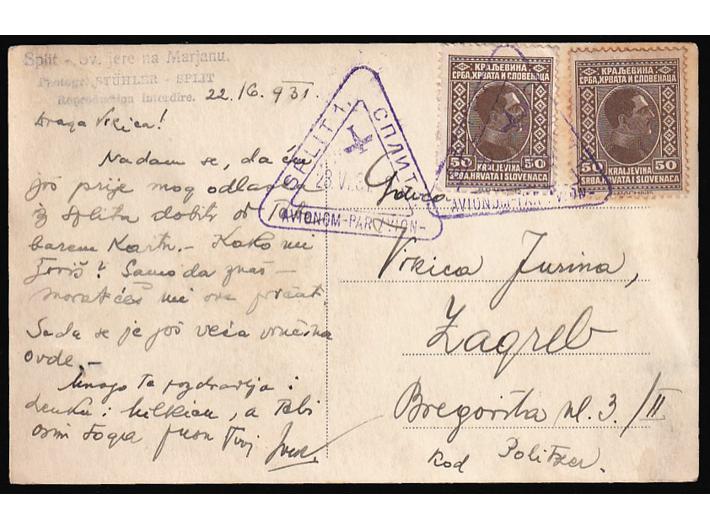 Split - Sv. Jere na Marjanu.
Photogr. STÜHLER - SPLIT
Reproduction interdire.
22./6. 931.
Draga Vrkica!
Nadam se, da ću
još prije mog odlaska
iz Splita dobiti od Tebe
barem kartu. - Kako mi
živiš? Samo da znaš -
morat ćeš mi sve pričat.
Sada se je još veća vrućina
ovde. -
Mnogo Te pozdravlja i
Lenku i Milkicu, a Tebi
osim toga puno Tvoj
SPLIT 1 СПЛИТ
23.VI.31
AVIONOM-PAR AVION-
AVIONOM-PAR AVION-
КРАЉЕВИНА
СРБА, ХРВАТА И СЛОВЕНАЦА
50 50
KRALJEVINA
SRBA, HRVATA I SLOVENACA
КРАЉЕВИНА
СРБА, ХРВАТА И СЛОВЕНАЦА
50 50
KRALJEVINA
SRBA, HRVATA I SLOVENACA
Gdica
Vrkica Jurina,
Zagreb
ul. 3./II
kod Politzer.